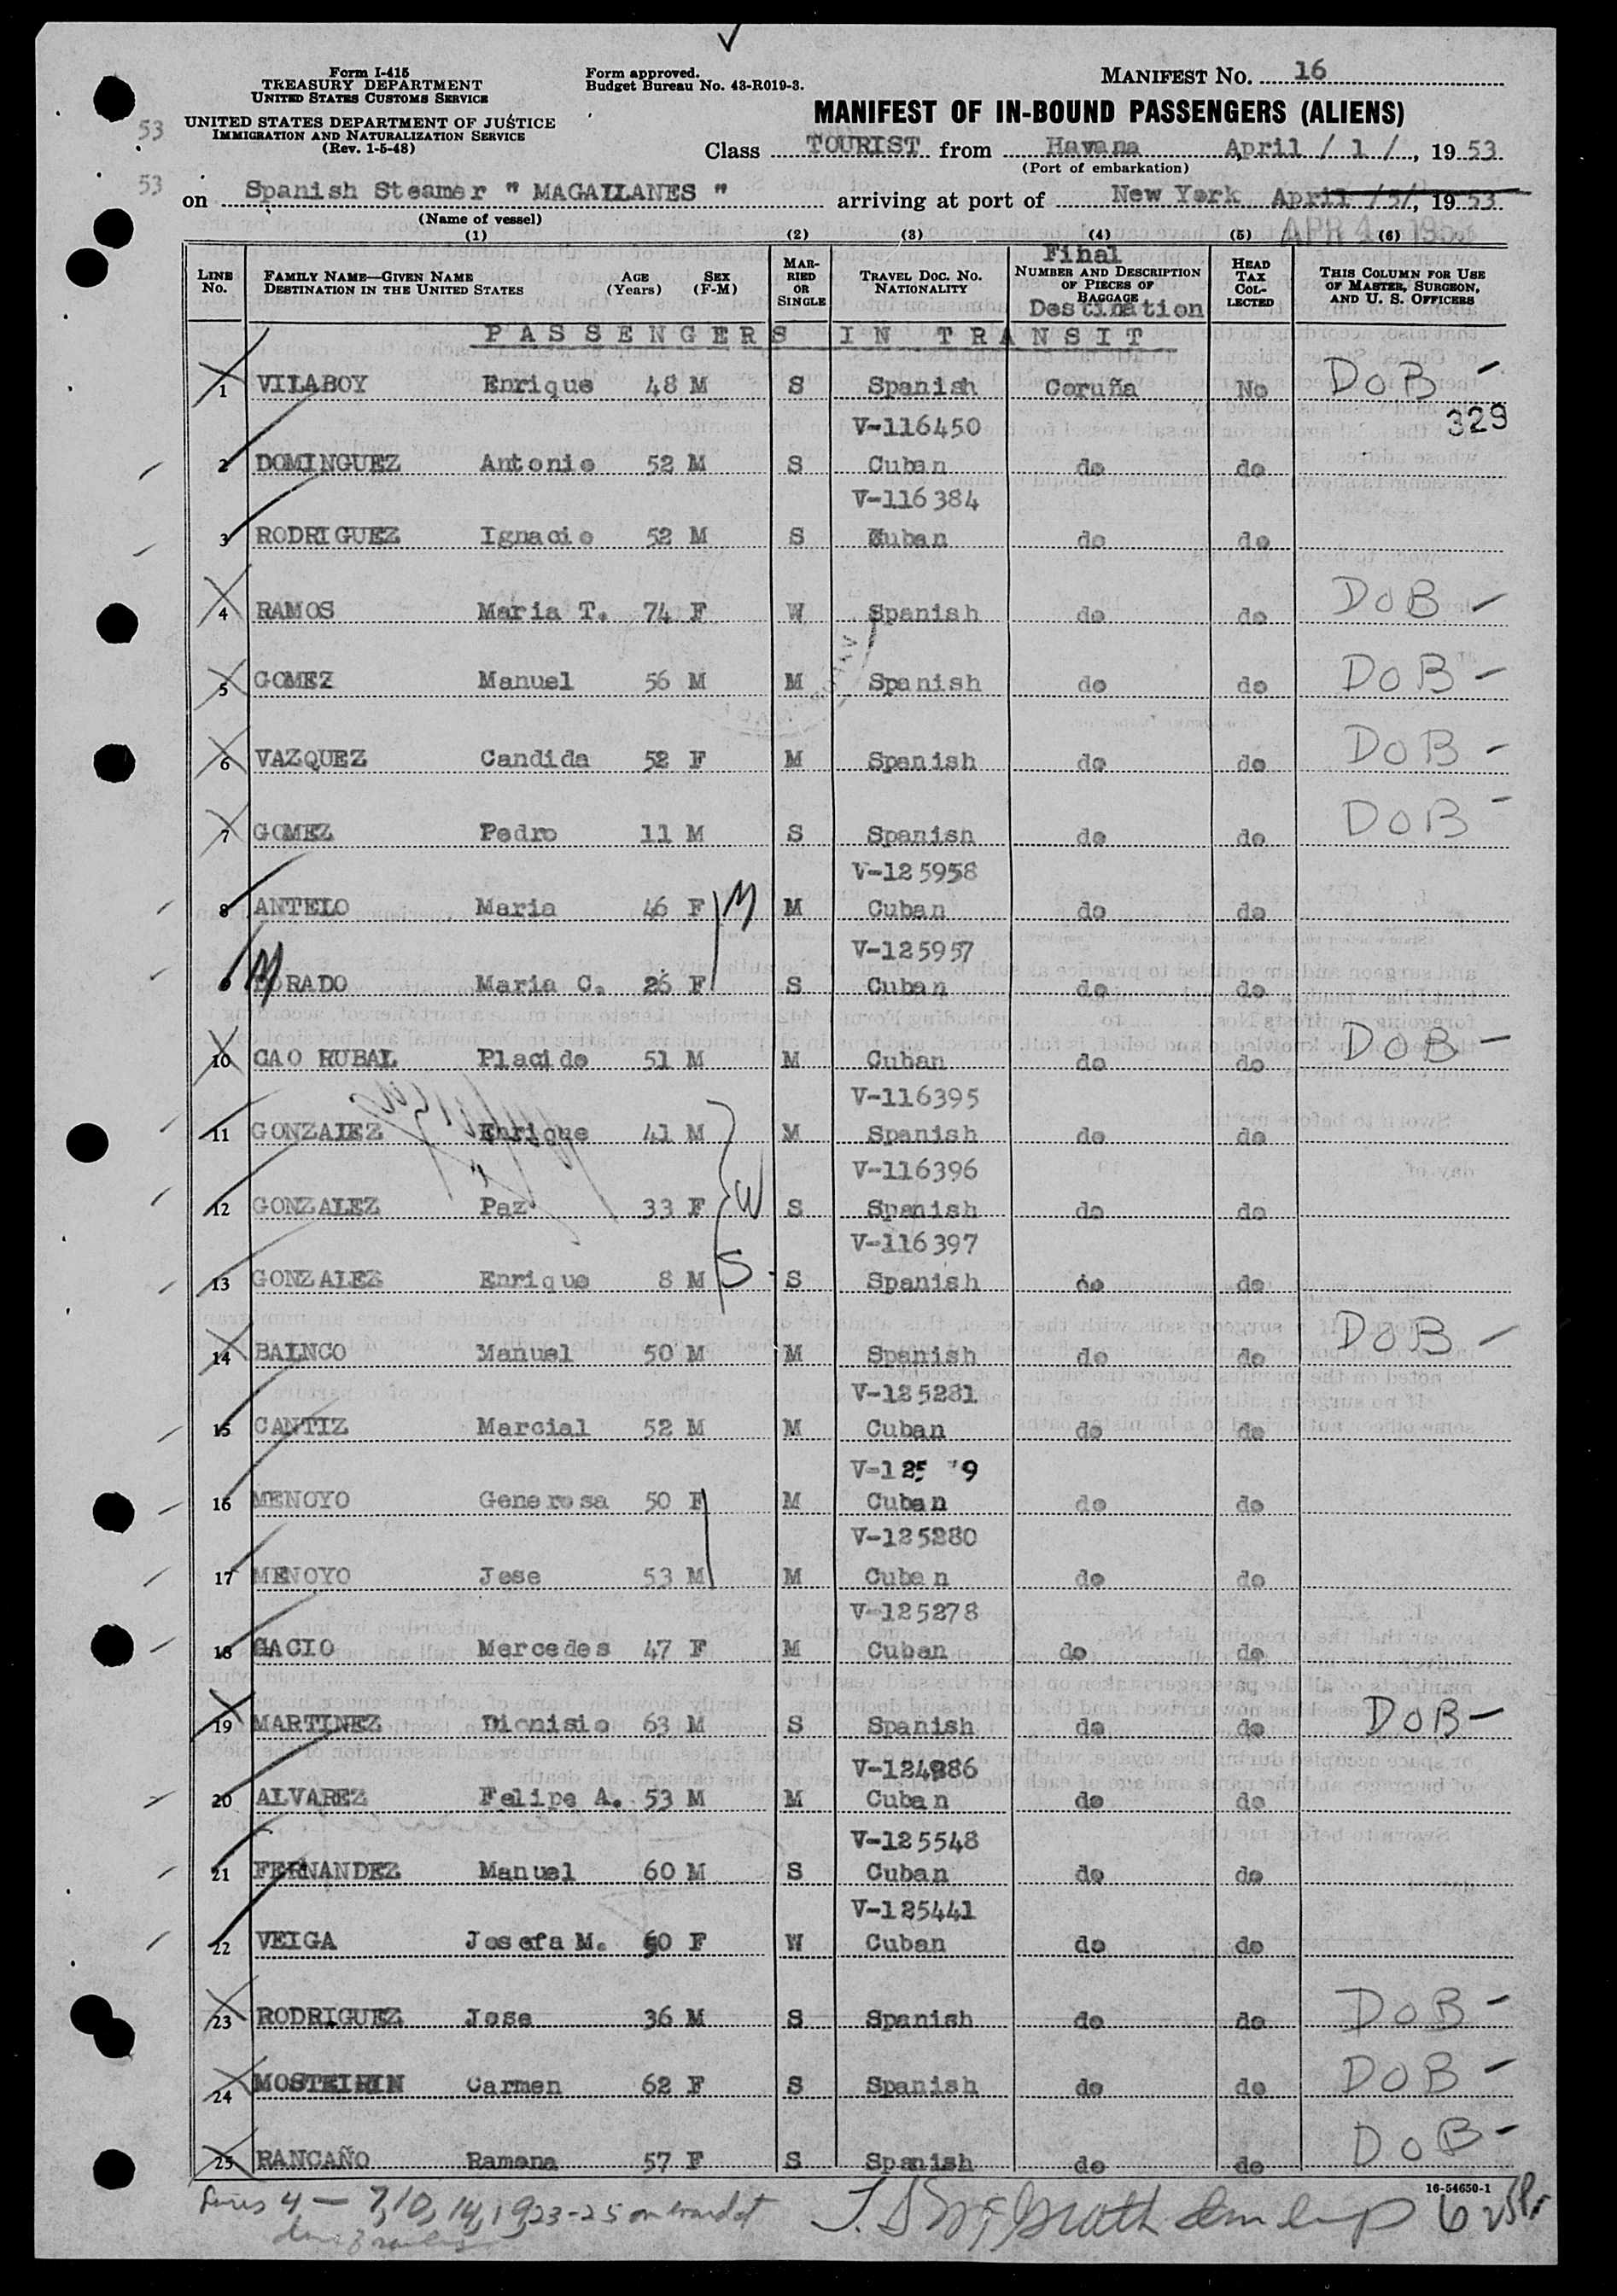 Form I-415
TREASURY DEPARTMENT
UNITED STATES CUSTOMS SERVICE
UNITED STATES DEPARTMENT OF JUSTICE
IMMIGRATION AND NATURALIZATION SERVICE
(Rev. 1-5-48)
Form approved.
Budget Bureau No. 43-R019-3.
MANIFEST NO. 16
MANIFEST OF IN-BOUND PASSENGERS (ALIENS)
53
Class TOURIST from Havana April / 1 /, 19 53
(Port of embarkation)
53
on Spanish Steamer " MAGALLANES " arriving at port of New York April /5/, 19 53
(Name of vessel)
APR 4 1953
(1) (2) (3) (4) (5) (6)
LINE NO.
FAMILY NAME—GIVEN NAME AGE SEX
DESTINATION IN THE UNITED STATES (Years) (F-M)
MARRIED OR SINGLE
TRAVEL DOC. NO.
NATIONALITY
Final
NUMBER AND DESCRIPTION OF PIECES OF BAGGAGE
Destination
HEAD TAX COLLECTED
THIS COLUMN FOR USE OF MASTER, SURGEON, AND U. S. OFFICERS
PASSENGERS IN TRANSIT
1 VILABOY Enrique 48 M S Spanish Coruña No DOB -
329
V-116450
2 DOMINGUEZ Antonio 52 M S Cuban do do
V-116384
3 RODRIGUEZ Ignacio 52 M S Cuban do do
4 RAMOS Maria T. 74 F W Spanish do do DOB -
5 GOMEZ Manuel 56 M M Spanish do do DOB -
6 VAZQUEZ Candida 52 F M Spanish do do DOB -
7 GOMEZ Pedro 11 M S Spanish do do DOB -
V-125958
8 ANTELO Maria 46 F M M Cuban do do
V-125957
9 DORADO Maria C. 26 F S Cuban do do
10 CAO RUBAL Placido 51 M M Cuban do do DOB -
V-116395
11 GONZALEZ Enrique 41 M M Spanish do do
V-116396
12 GONZALEZ Paz 33 F W S Spanish do do
V-116397
13 GONZALEZ Enrique 8 M S S Spanish do do
14 BALNCO Manuel 50 M M Spanish do do DOB -
V-125281
15 CANTIZ Marcial 52 M M Cuban do do
16 MENOYO Generosa 50 F M Cuban do do
V-125280
17 MENOYO Jose 53 M M Cuban do do
V-125278
18 GACIO Mercedes 47 F M Cuban do do
19 MARTINEZ Dionisio 63 M S Spanish do do DOB -
V-124886
20 ALVAREZ Felipe A. 53 M M Cuban do do
V-125548
21 FERNANDEZ Manuel 60 M S Cuban do do
V-125441
22 VEIGA Josefa M. 60 F W Cuban do do
23 RODRIGUEZ Jose 36 M S Spanish do do DOB -
24 MOSTEIRIN Carmen 62 F S Spanish do do DOB -
25 RANCAÑO Ramona 57 F S Spanish do do DOB -
16-54650-1
4 - 7, 10, 14, 19, 23-25 on board at